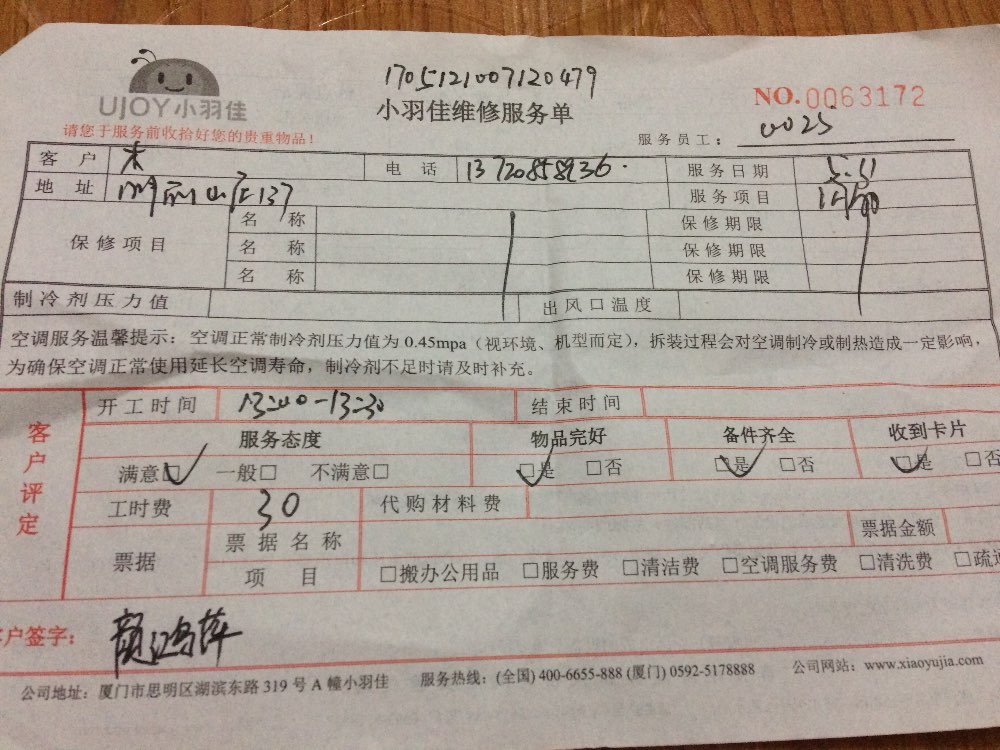 1705121007120479
UJOY小羽佳
小羽佳维修服务单
NO.0063172
请您于服务前收拾好您的贵重物品!
服务员工: 0025
客户 电话 13720858936. 服务日期
地址 137 服务项目
保修项目 名称 保修期限
名称 保修期限
名称 保修期限
制冷剂压力值 出风口温度
空调服务温馨提示:空调正常制冷剂压力值为 0.45mpa(视环境、机型而定),拆装过程会对空调制冷或制热造成一定影响,
为确保空调正常使用延长空调寿命,制冷剂不足时请及时补充。
客户评定
开工时间 结束时间
服务态度 物品完好 备件齐全 收到卡片
满意□ 一般□ 不满意□ □是 □否 □是 □否 □是 □否
工时费 30 代购材料费
票据 票据名称 票据金额
项目 □搬办公用品 □服务费 □清洁费 □空调服务费 □清洗费 □疏通
客户签字: 颜鸿萍
公司地址:厦门市思明区湖滨东路 319 号 A 幢小羽佳 服务热线:(全国) 400-6655-888 (厦门) 0592-5178888 公司网站:www.xiaoyujia.com